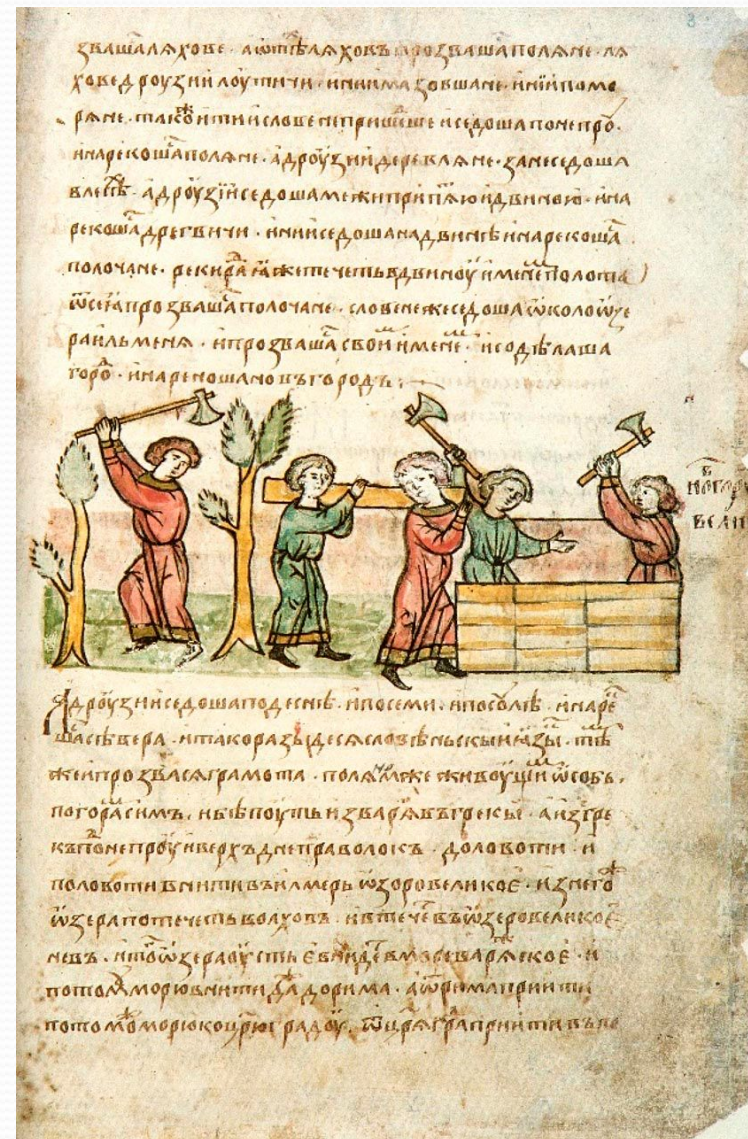 звашаляхове · аѿтѣляховъ прозвашаполяне · ля
ховедроузиилоутичи · инимазовшане · инїипомо
ряне · такоитиисловенепришедше иседошапонепроу ·
инарекошаполяне · адроузиидеревляне · занеседоша
влесѣ · адроузїиседошамежиприпѧтью идвиною · ина
рекошадреговичи · инииседошанадвинѣинарекоша
полочане · рекирадиꙗжетечетьвдвиноу именемполота
ѿсеꙗпрозвашаполочане · словенежеседошаѡколоѡзе
раильменя · ипрозвашасвоимъимене · исодѣлаша
горо · инарекошановъгородъ ·
в
новгоро
вели
Адроузииседошаподеснѣ · ипосеми · ипосоулѣ · инаре
шасѣвера · итакоразыдесясловѣньскыиꙗзы · тѣ
жеипрозвасяграмота · полямжеживоущиѡсобь ·
погорасимъ · ибѣпоутьизварягъвъгрекы · аизгре
къпонепроуиверхъднеправолокъ · доловоти · и
половотивнитивъилмерьѡзоровеликоє · изнего
ѡзерапотечетьволховъ · ивтечевъѡзеровеликоє
невъ · итоѡзераоустьєвнидевмореваряскоє · и
потомоуморювнитидадорима · аѿримаприити
потомоморюкоцрюградоу · ѿцряграприитивъпо